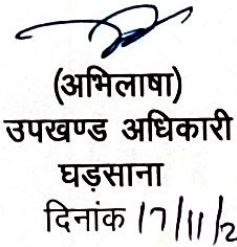 (अभिलाषा)
उपखण्ड अधिकारी
घड़साना
दिनांक 17/11/2